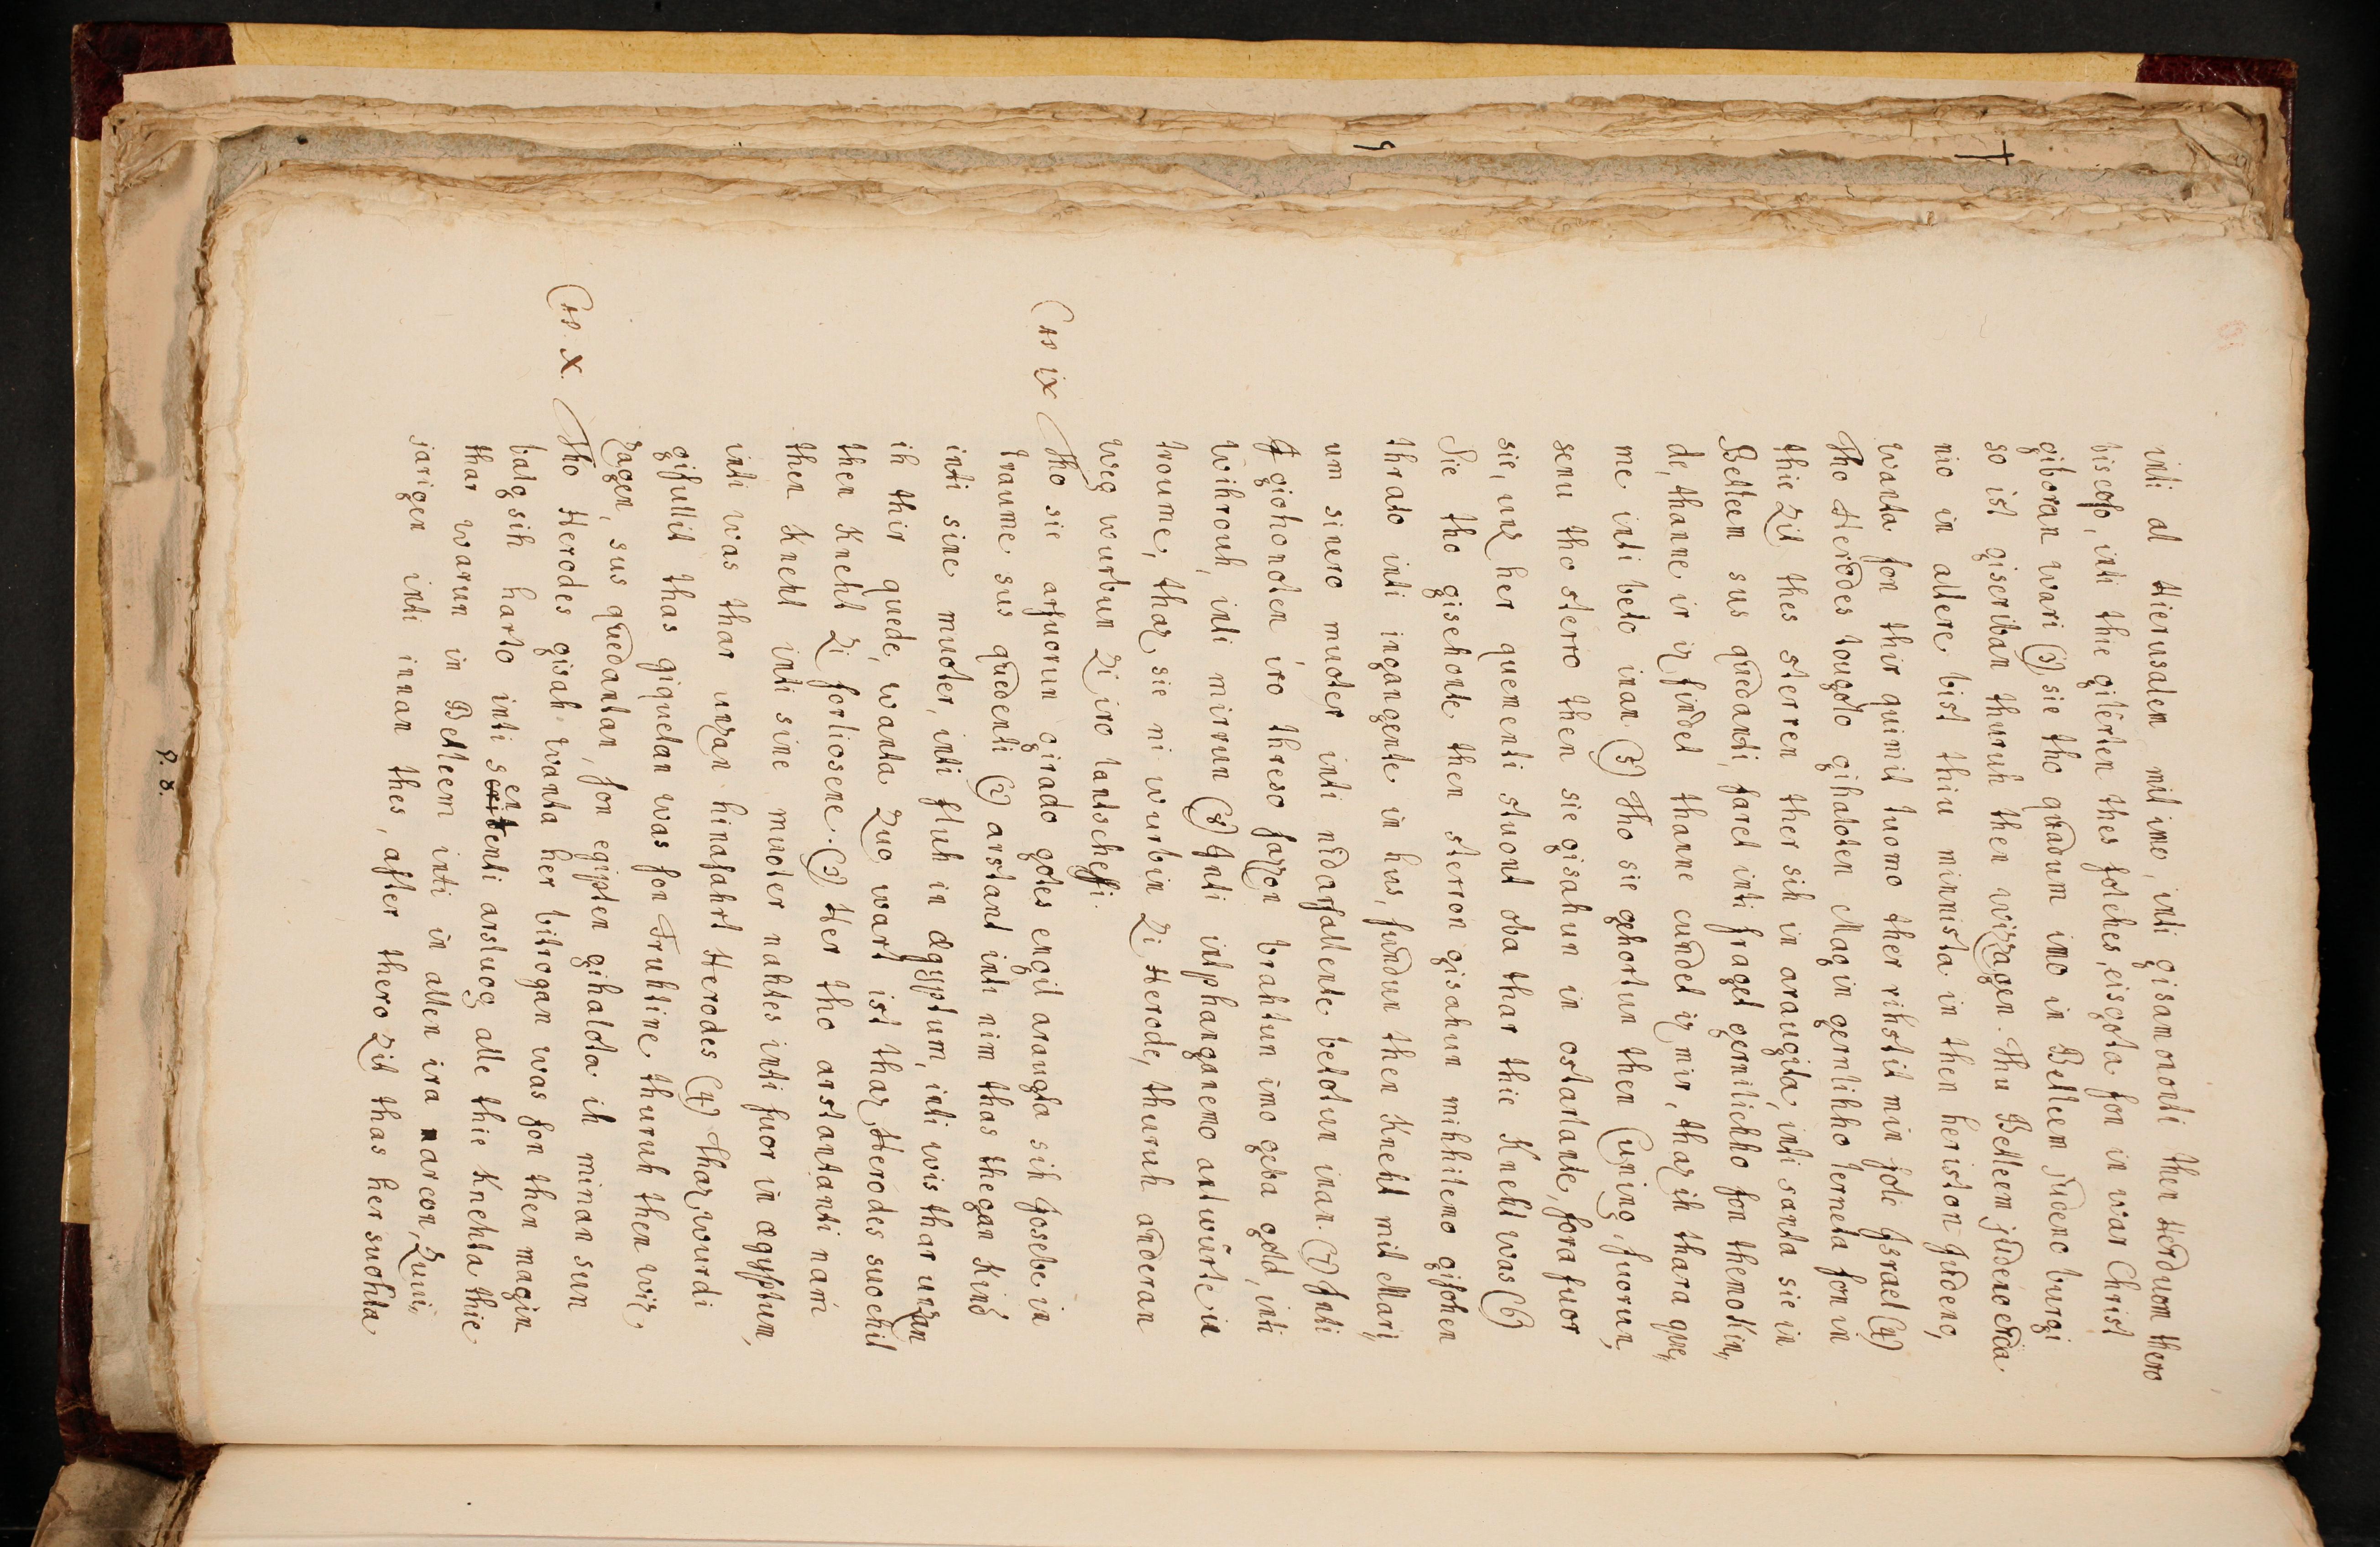 inti al Hierusalem mit imo, inti gisamononti then Herduom thero
biscofo, inti thie gilerten thes folches, eiscota fon in war Christ
giboran wari (3) sie tho quadum imo in Betleem judeno burgi
so ist giscriban thuruh then wizzagon. Thu Betleem judeno erda
nio in altere bist thiu minnista in then heriston Judeno,
wanta fon thir quimit tuomo ther rihstit min folc Israel (4)
Tho Herodes tougolo gihaloten Magin gernlihho lerneta fon in
thie zit thes sterren ther sih in araugita, inti santa sie in
Betleem sus quedanti, faret inti fraget gernilichho fon themo Kin„
de, thanne ir iz findet thanne cundet iz mir, thaz ih thara que„
me inti beto inan (5) Tho sie gihortun then Cuning, fuorun,
senu tho sterro then sie gisahun in ostarlante, fora fuor
sie, unz her quementi stuont oba thar thie Kneht was (6)
Sie tho gisehente then sterron gisahun mihhilemo gifehen
thrato inti ingangente in hus, fundun then Kneht mit Mari„
um sinero muoter inti nidarfallente betotun inan. (7) Inti
gioffonoten iro threso fazzon brahtun imo geba gold, inti
wihrouh, inti mirrun (8) Inti intphanganemo antwurte in
troume, thaz sie ni wurbin zi Herode, thuruh anderan
weg wurbun zi iro lantscheffi.
Cap ix Tho sie arfuorun girado gotes engil araugta sih Josebe in
traume sus quedenti (2) arstant inti nim thas thegan Kind
inti sine muoter, inti fluh in Ægyptum, inti wis thar unzan
ih thir quede, wanta zuo wart ist thaz Herodes suochit
then Kneht zi forliosene. (3) Her tho arstantanti nam
then Kneht inti sine muoter nahtes inti fuor in ægyptum,
inti was thar unzan hinafahrt Herodes (4) Thaz wurdi
gifullit thas giquetan was fon Truhtine thuruh then wiz„
zagen, sus quedantan, fon egipten gihalota ih minan sun
Cap. X. Tho Herodes gisah wanta her bitrogan was fon then magin
balg sih harto inti sententi arsluog alle thie Knehta thie
thar warun in Betleem inti in allen ira marcon, zuui„
jarigen inti innan thes, after thero zit thas her suohta
9
9. 8.